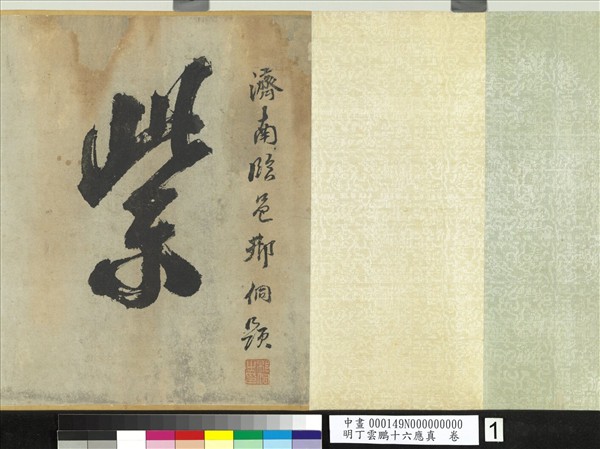 濟南臨邑邢侗題
紫
中畫000149N000000000
明丁雲鵬十六應真 卷
1